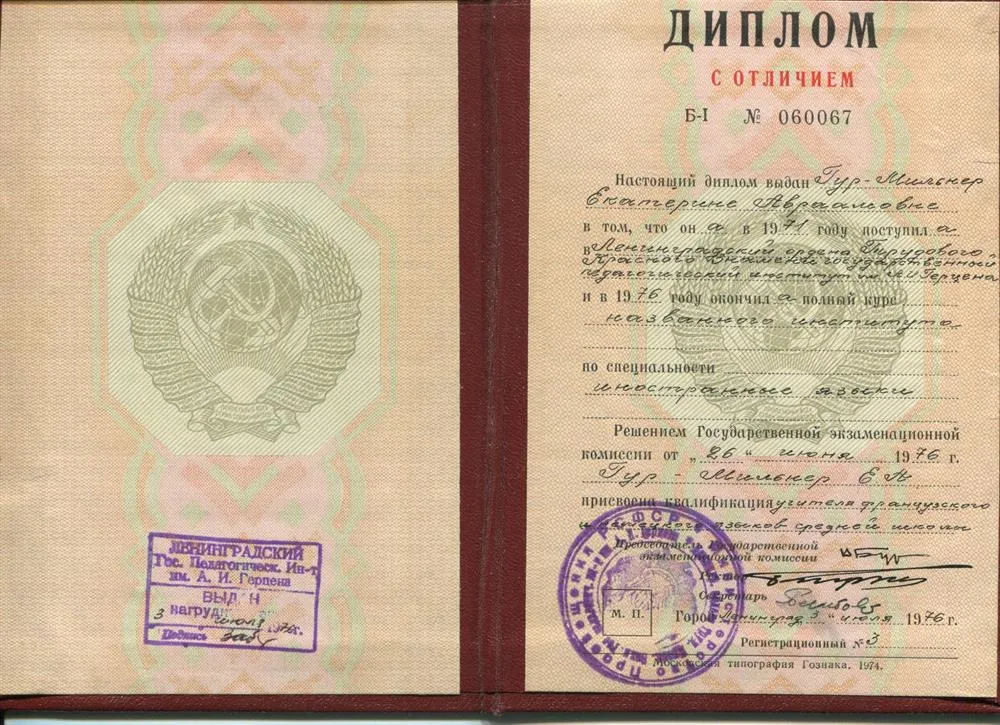 ЛЕНИНГРАДСКИЙ
Гос. Педагогическ. Ин-т
им. А. И. Герцена
ВЫДАН
нагрудн
3 июля 1976г.
Подпись
ДИПЛОМ
С ОТЛИЧИЕМ
Б-I № 060067
Настоящий диплом выдан Гур-Мильнер
Екатерине Авраамовне
в том, что он а в 1971 году поступил а
в Ленинградский ордена Трудового
Красного Знамени государственный
педагогический институт им. А.И. Герцена
и в 1976 году окончил а полный курс
названного института
по специальности
иностранные языки
Решением Государственной экзаменационной
комиссии от „26" июня 1976 г.
Гур-Мильнер Е А
присвоена квалификация учителя французского
и немецкого языков средней школы
Председатель Государственной
экзаменационной комиссии
Ректор
Секретарь
М. П.
Город Ленинград " июля 1976 г.
Регистрационный № 3
Московская типография Гознака. 1974.